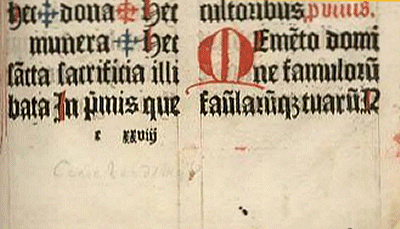 hec ✠ dona ✠ Hec
munera ✠ Hec
sācta sacrificia illi
bata In p̄mis que
xxviij
cultoribus
MEmēto domi
ne famulorū
faūlarūqꝫ tuarū N